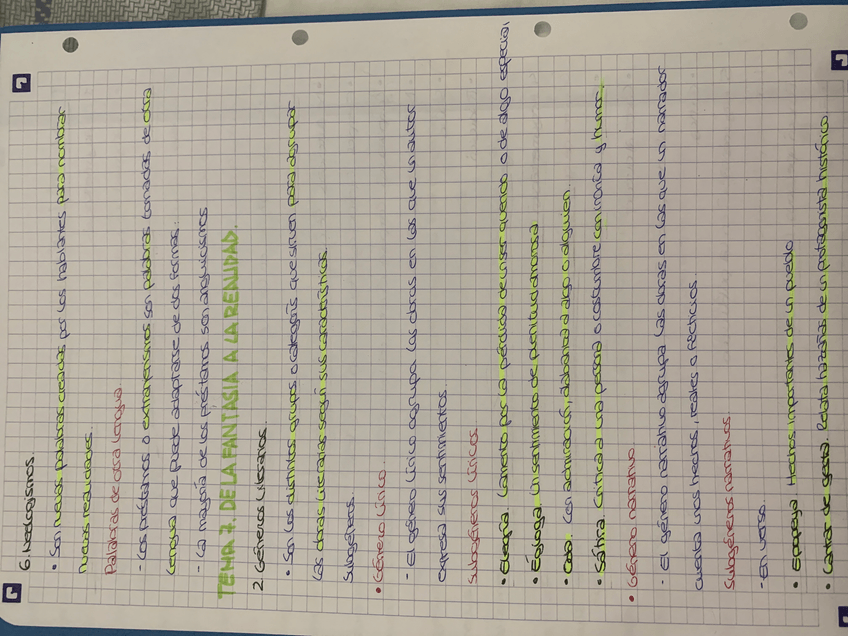 6. Neologismos.
• Son nuevas palabras creadas por los hablantes para nombrar
nuevas realidades.
Palabras de otra lengua
- Los préstamos o extranjerismos son palabras tomadas de otra
lengua que puede adaptarse de dos formas.
- La mayoría de los préstamos son anglicismos
TEMA 7. DE LA FANTASIA A LA REALIDAD.
2. Géneros literarios.
• Son los distintos grupos o categorías que sirven para agrupar
las obras literarias según sus características.
Subgéneros.
• Género lírico.
- El género lírico agrupa las obras en las que un autor
expresa sus sentimientos.
Subgéneros líricos.
• Elegía. Lamento por la pérdida de un ser querido o de algo especial
• Égloga. Un sentimiento de plenitud amorosa
• Oda. Con admiración, alabanza a algo o alguien.
• Sátira. Critica a una persona o costumbre con ironía y humor.
• Género narrativo
- El género narrativo agrupa las obras en las que un narrador
cuenta unos hechos, reales o ficticios
Subgéneros narrativos
- En verso.
• Epopeya. Hechos importantes de un pueblo
• Cantar de gesta. Relata hazañas de un protagonista histórico